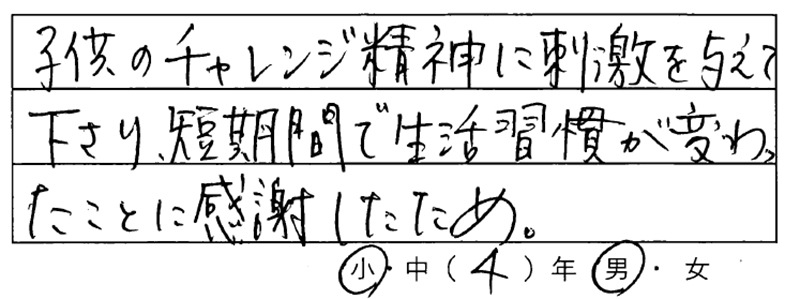 子供のチャレンジ精神に刺激を与えて
下さり、短期間で生活習慣が変わっ
たことに感謝したため。
小・中(4)年 男・女